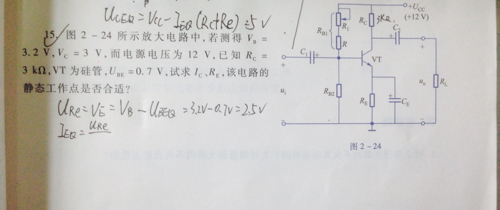 U_CEQ = V_CC - I_EQ(Rc+Re) = 5V
15. 图 2-24 所示放大电路中,若测得 V_B =
3.2 V, V_C = 3 V,而电源电压为 12 V,已知 R_C =
3 kΩ, VT 为硅管, U_BE = 0.7 V,试求 I_C, R_E,该电路的
静态工作点是否合适?
U_Re = V_E = V_B - U_BEQ = 3.2V - 0.7V = 2.5V
I_EQ = U_Re
+U_CC
(+12 V)
R_C
3kΩ
C_2
R_B1
R
C_1
VT
R_B2
R_E
C_E
R_L
u_i
u_o
图 2-24